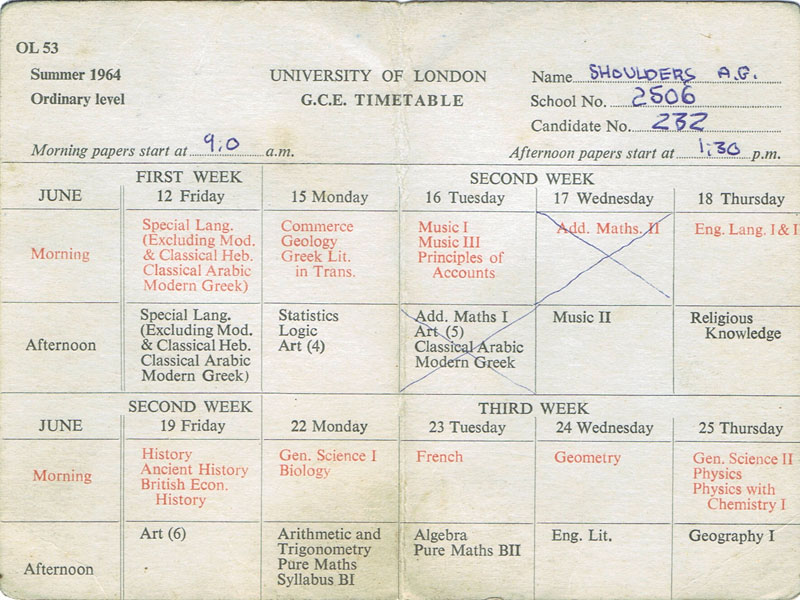 OL 53
Summer 1964
Ordinary level
UNIVERSITY OF LONDON
G.C.E. TIMETABLE
Name SHOULDERS A.G.
School No. 2506
Candidate No. 232
Morning papers start at 9.0 a.m.
Afternoon papers start at 1.30 p.m.
FIRST WEEK
SECOND WEEK
JUNE
12 Friday
15 Monday
16 Tuesday
17 Wednesday
18 Thursday
Morning
Special Lang.
(Excluding Mod.
& Classical Heb.
Classical Arabic
Modern Greek)
Commerce
Geology
Greek Lit.
in Trans.
Music I
Music III
Principles of
Accounts
Add. Maths. II
Eng. Lang. I & I
Afternoon
Special Lang.
(Excluding Mod.
& Classical Heb.
Classical Arabic
Modern Greek)
Statistics
Logic
Art (4)
Add. Maths I
Art (5)
Classical Arabic
Modern Greek
Music II
Religious
Knowledge
SECOND WEEK
THIRD WEEK
JUNE
19 Friday
22 Monday
23 Tuesday
24 Wednesday
25 Thursday
Morning
History
Ancient History
British Econ.
History
Gen. Science I
Biology
French
Geometry
Gen. Science II
Physics
Physics with
Chemistry I
Afternoon
Art (6)
Arithmetic and
Trigonometry
Pure Maths
Syllabus BI
Algebra
Pure Maths BII
Eng. Lit.
Geography I